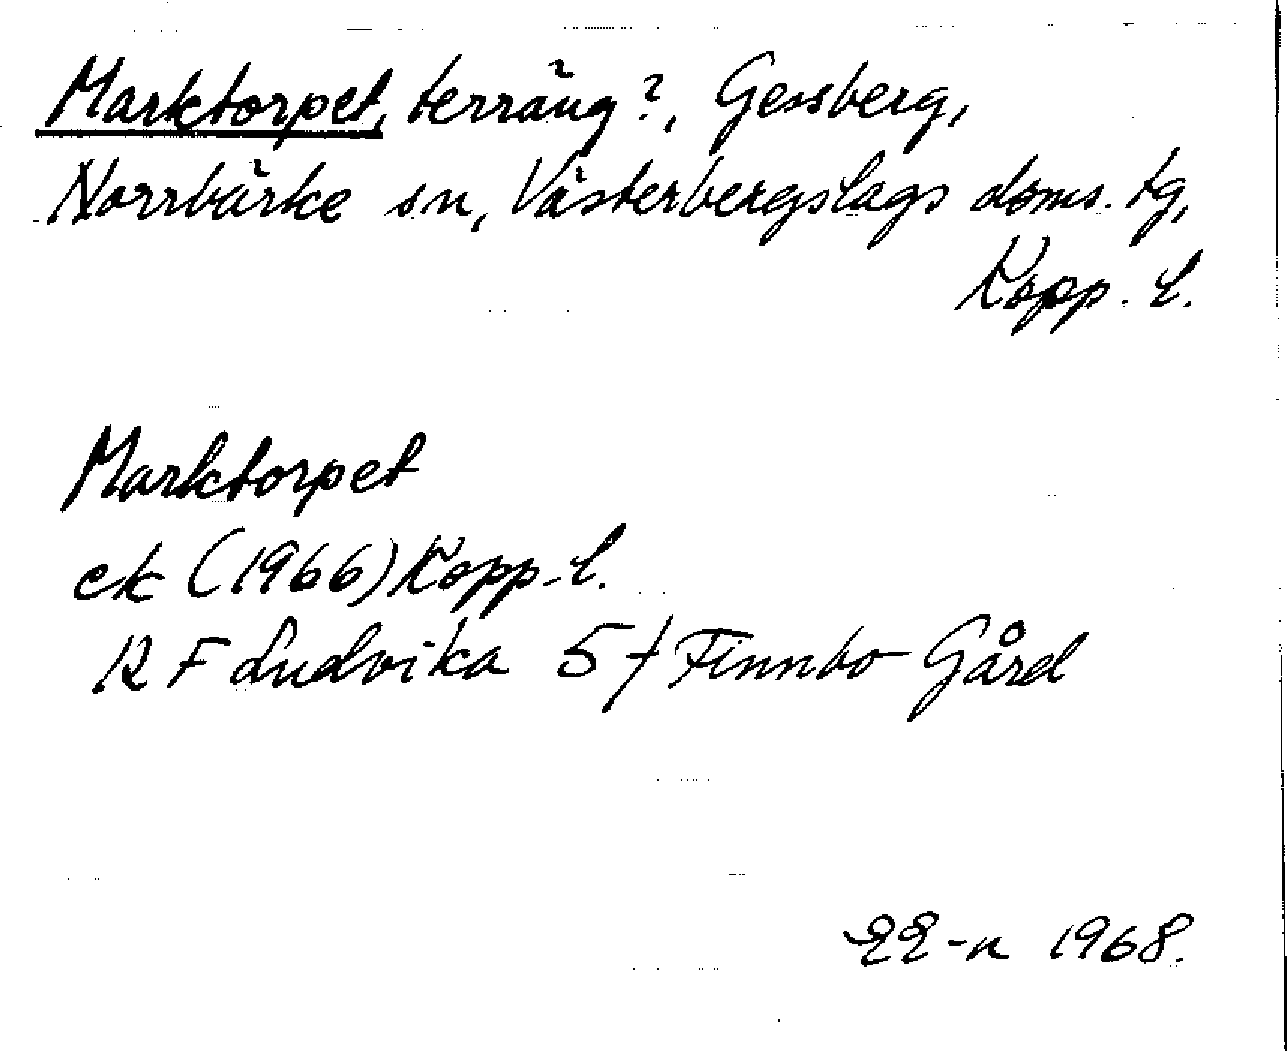 Marktorpet, terräng?, Gessberg,
Norrbärke sn, Västerbergslags doms. tg,
Kopp. l.
Marktorpet
ek (1966) Kopp. l.
12 F Ludvika 5 f Finnbo Gård
EE-n 1968.